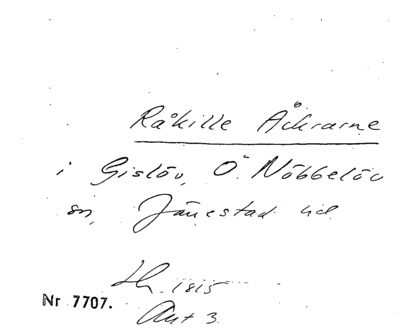 Råkille Åckrarne
i Gislöv, Ö. Nöbbelöv
sn, Järrestad hd
Lh. 1815
Nr 7707.
Akt 3.